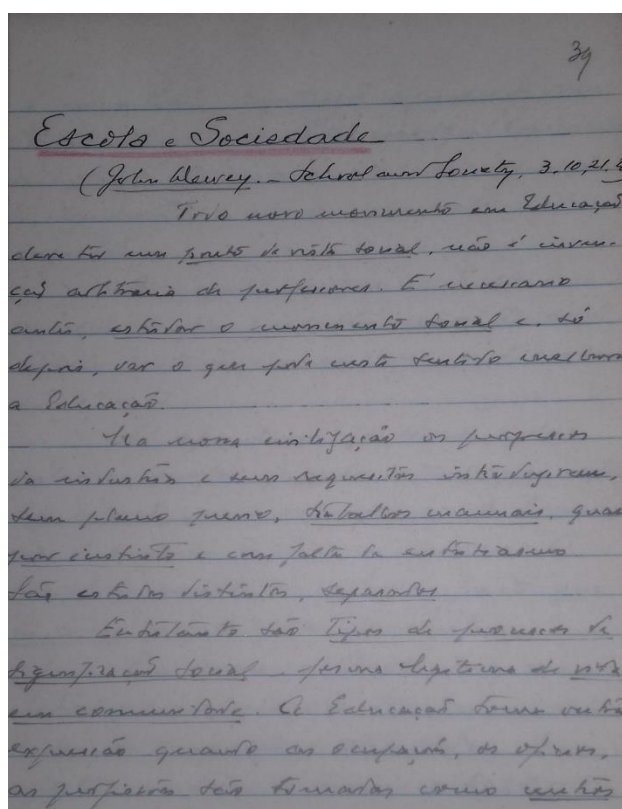 39
Escola e Sociedade
(John Dewey - School and Society, 3, 10, 21,
Todo novo movimento em Educação
deve ter um ponto de vista social, não é inven-
ção arbitraria de professores. É necessario
então, estudar o movimento social e, só
depois, ver o que pode neste sentido melhorar
a Educação.
Na nossa civilização os progressos
da industria e seus requesitos introdugiram,
sem plano previo, trabalhos manuais, quasi
por instinto e com falta de entusiasmo
São estudos distintos, separados
Entretanto são tipos de processos de
significação social, forma legitima de vida
em comunidade. A Educação toma outra
expressão quando as ocupações, os oficios,
as profissões são tomadas como